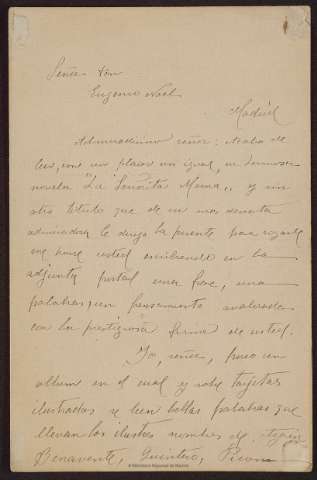 Señor Don
Eugenio Noel
Madrid
Admiradísimo señor: Acabo de
leer, con un placer sin igual, su hermosa
novela "La Señorita Mamá", y sin
otro título que de un mas devota
admiradora le dirijo la presente para rogarle
me honre usted escribiendo en la
adjunta postal una frase, una
palabra, un pensamiento avalorado
con la prestigiosa firma de usted.
Yo, señor, poseo un
album en el cual y sobre tarjetas
ilustradas se leen bellas palabras que
llevan los ilustres nombres de
Benavente, Quintero, Picón
© Biblioteca Regional de Madrid